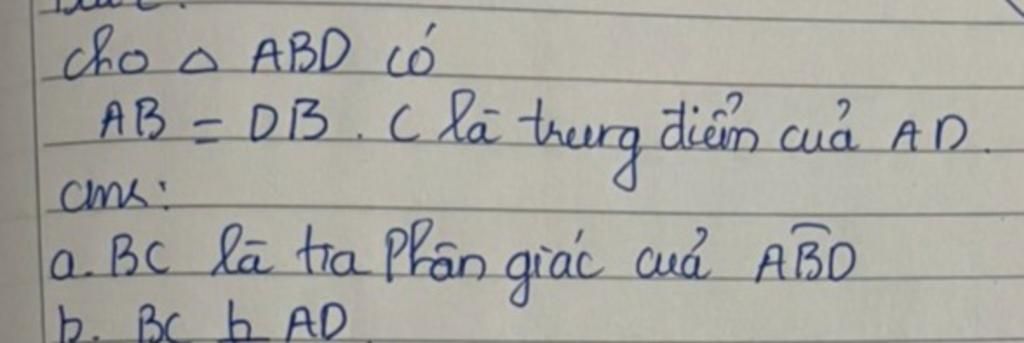 cho △ ABD có
AB = DB. C là trung điểm của AD.
cmr:
a. BC là tia Phân giác của ABD
b. BC ⊥ AD